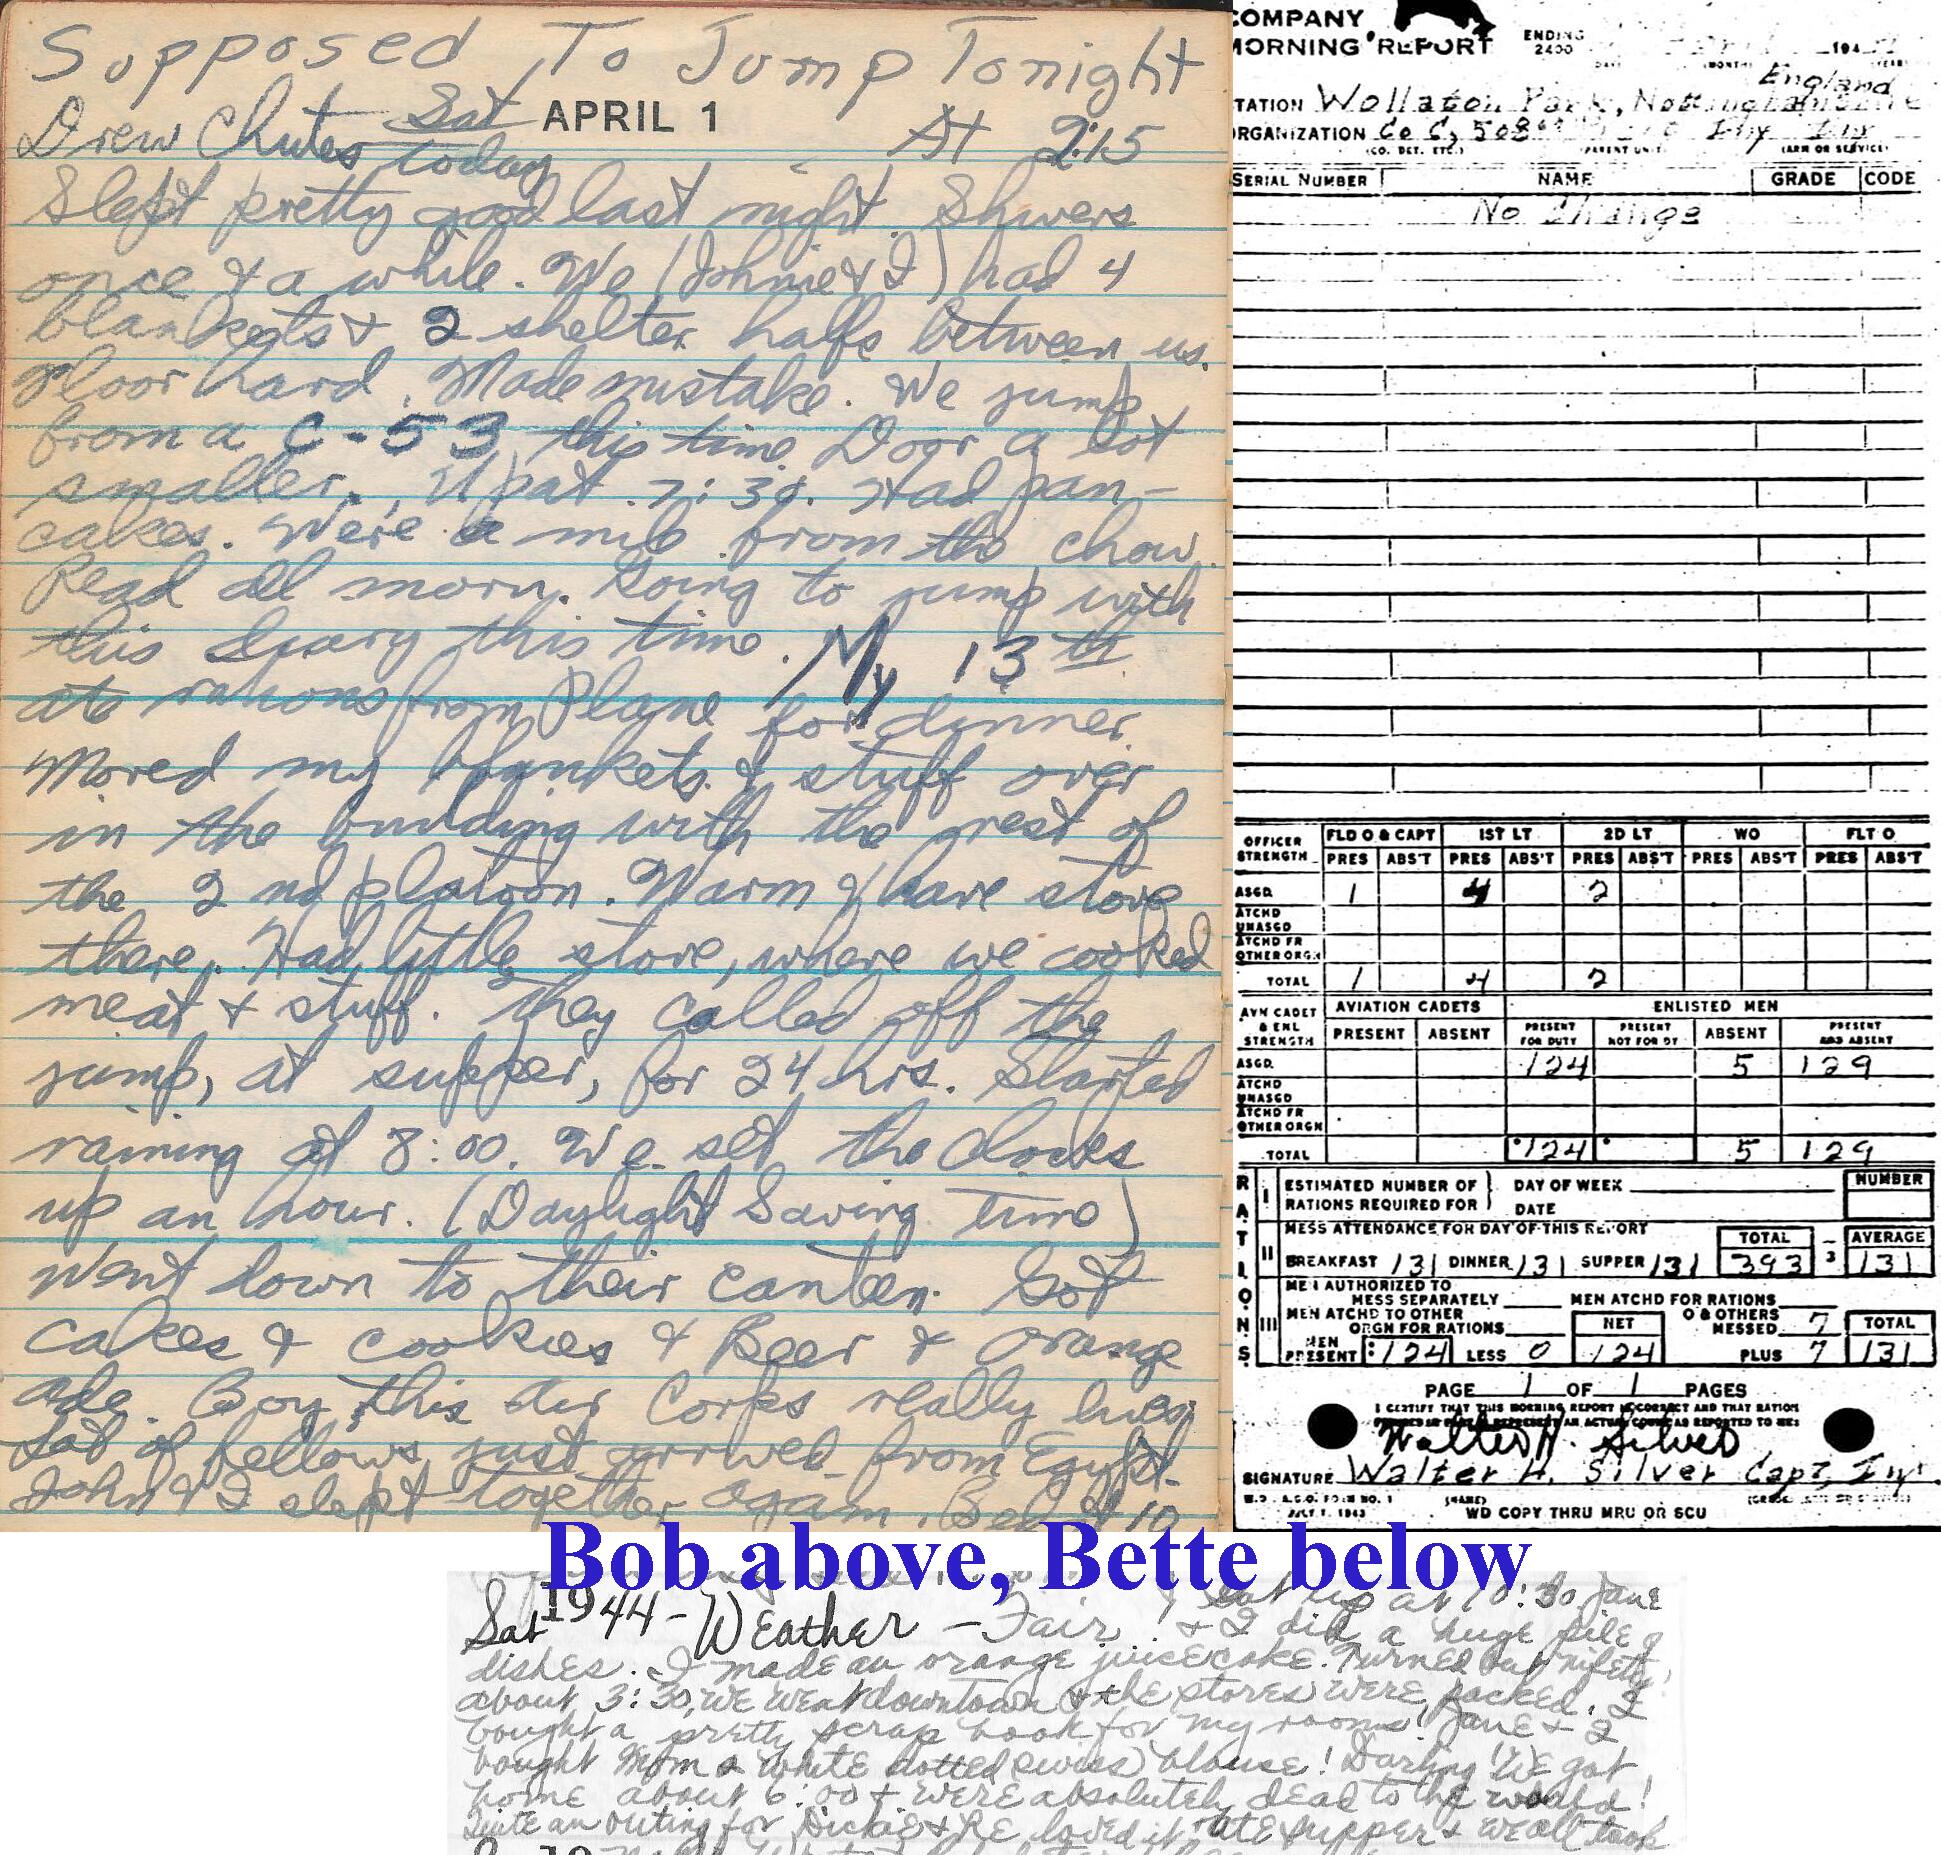 Supposed To Jump Tonight
Sat APRIL 1 At 2:15
Drew Chutes today
Slept pretty good last night. Shivers
once & a while. We (Johnie & I) had 4
blankets & 2 shelter halfs between us.
Floor hard. Made mistake. We jump
from a C-53 this time. Door a lot
smaller. Up at 7:30. Had pan-
cakes. We're a mile from the chow.
Read all morn. Going to jump with
this diary this time. My 13th
ate rations from Plane for dinner.
Moved my blankets & stuff over
in the building with the rest of
the 2nd platoon. Warm & have stove
there. Had little stove, where we cooked
meat & stuff. They called off the
jump, at supper, for 24 hrs. Started
raining at 8:00. We set the clocks
up an hour. (Daylight Saving Time)
Went down to their canteen. Got
cakes & cookies & Beer & orange
ade. Boy, this Air Corps really lives.
Lot of fellows just arrived from Egypt.
John & I slept together again. Bed at 10
COMPANY
MORNING REPORT
ENDING
2400
194
DAY (MONTH) (YEAR)
England
STATION Wollaton Park, Nottinghamshire
ORGANIZATION Co C, 508th Inf Inf
(CO. DET. ETC.) (PARENT UNIT) (ARM OR SERVICE)
SERIAL NUMBER NAME GRADE CODE
No Change
OFFICER STRENGTH FLD O & CAPT 1ST LT 2D LT WO FLT O
PRES ABS'T PRES ABS'T PRES ABS'T PRES ABS'T PRES ABS'T
ASGD 1 4 2
ATCHD UNASGD
ATCHD FR OTHER ORGN
TOTAL 1 4 2
AVN CADET & ENL STRENGTH AVIATION CADETS ENLISTED MEN
PRESENT ABSENT PRESENT FOR DUTY PRESENT NOT FOR DY ABSENT PRESENT AND ABSENT
ASGD 124 5 129
ATCHD UNASGD
ATCHD FR OTHER ORGN
TOTAL 124 5 129
RATIONS
I ESTIMATED NUMBER OF RATIONS REQUIRED FOR DAY OF WEEK DATE NUMBER
II MESS ATTENDANCE FOR DAY OF THIS REPORT TOTAL ÷ AVERAGE
BREAKFAST 131 DINNER 131 SUPPER 131 393 3 131
III MEN AUTHORIZED TO
MESS SEPARATELY MEN ATCHD FOR RATIONS
MEN ATCHD TO OTHER
ORGN FOR RATIONS NET O & OTHERS MESSED 7 TOTAL
MEN PRESENT 124 LESS 0 124 PLUS 7 131
PAGE 1 OF 1 PAGES
I CERTIFY THAT THIS MORNING REPORT IS CORRECT AND THAT RATION
Walter H. Silver
SIGNATURE Walter H. Silver Capt, Inf
W.D., A.G.O. FORM NO. 1 (NAME)
JULY 1, 1943 WD COPY THRU MRU OR SCU
Bob above, Bette below
Sat 1944 - Weather - Fair! Got up at 10:30 Jane
& I did a huge pile of
dishes. I made an orange juice cake. Turned out nifety,
about 3:30, we went downtown & the stores were packed. I
bought a pretty scrap book for my rooms! Jane & I
bought Mom a white dotted (swiss) blouse! Darling! We got
home about 6:00 & were absolutely dead to the world!
Quite an outing for Dickie & he loved it. Ate supper & we all took